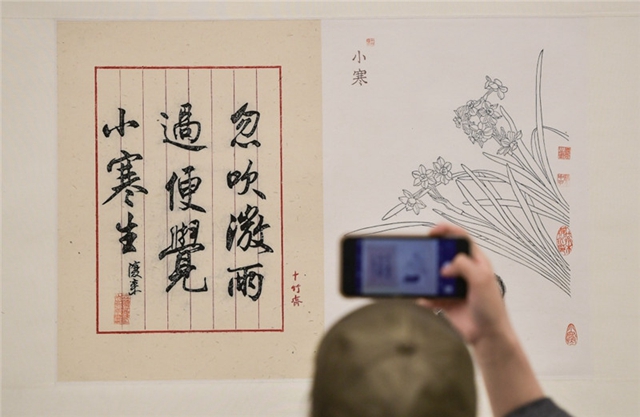 忽吹微雨
過便覺
小寒生
十竹齋
小寒